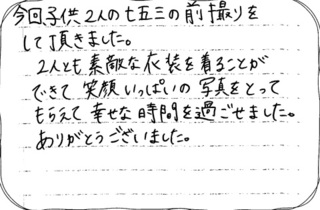 今回子供2人の七五三の前撮りを
して頂きました。
2人とも素敵な衣装を着ることが
できて笑顔いっぱいの写真をとって
もらえて幸せな時間を過ごせました。
ありがとうございました。